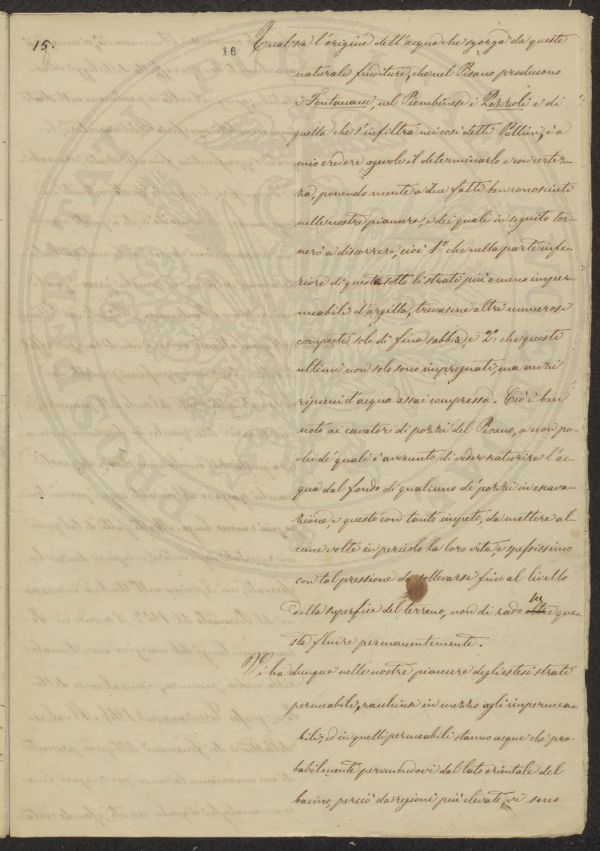 15.
18
Qual sia l'origine dell'acqua che sgorga da queste
naturale fenditure, che nel Pisano producono
i Fontanacci, nel Piombinese i Pozzali e di
quella che s'infiltra nei così detti Pollini, è a
mio credere agevole il determinarlo e con certez-
za, ponendo mente a due fatti ben conosciuti
nelle nostre pianure, e dei quali in seguito tor-
nerò a discorrere, cioè 1.° che nella parte infe-
riore di queste sotto li strati più o meno imper-
meabili d'argilla, trovasene altri numerosi
composti solo di fina sabbia, e 2.° che questi
ultimi non solo sono impregnati, ma anzi
ripieni d'acqua assai compressa. Ciò è ben
noto ai cavatori di pozzi del Pisano, a non po-
chi de' quali è avvenuto di veder scaturire l'ac-
qua dal fondo di qualcuno de' pozzi in escava-
zione, e questo con tanto impeto, da mettere al-
cune volte in pericolo la loro vita, e spessissimo
con tal pressione da sollevarsi fino al livello
della superficie del terreno, non di rado oltre que-
sta fluire permanentemente.
Vi ha dunque nelle nostre pianure degli estesi strati
permeabili, racchiusi in mezzo agli impermea-
bili, ed in quelli permeabili stanno acque che pro-
babilmente provenendovi dal lato orientale del
bacino, perciò da regioni più elevate, vi sono